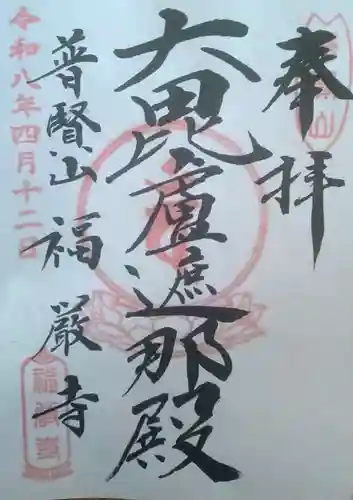 奉拝
大毘盧遮那殿
普賢山 福厳寺
令和八年四月十二日
福厳寺